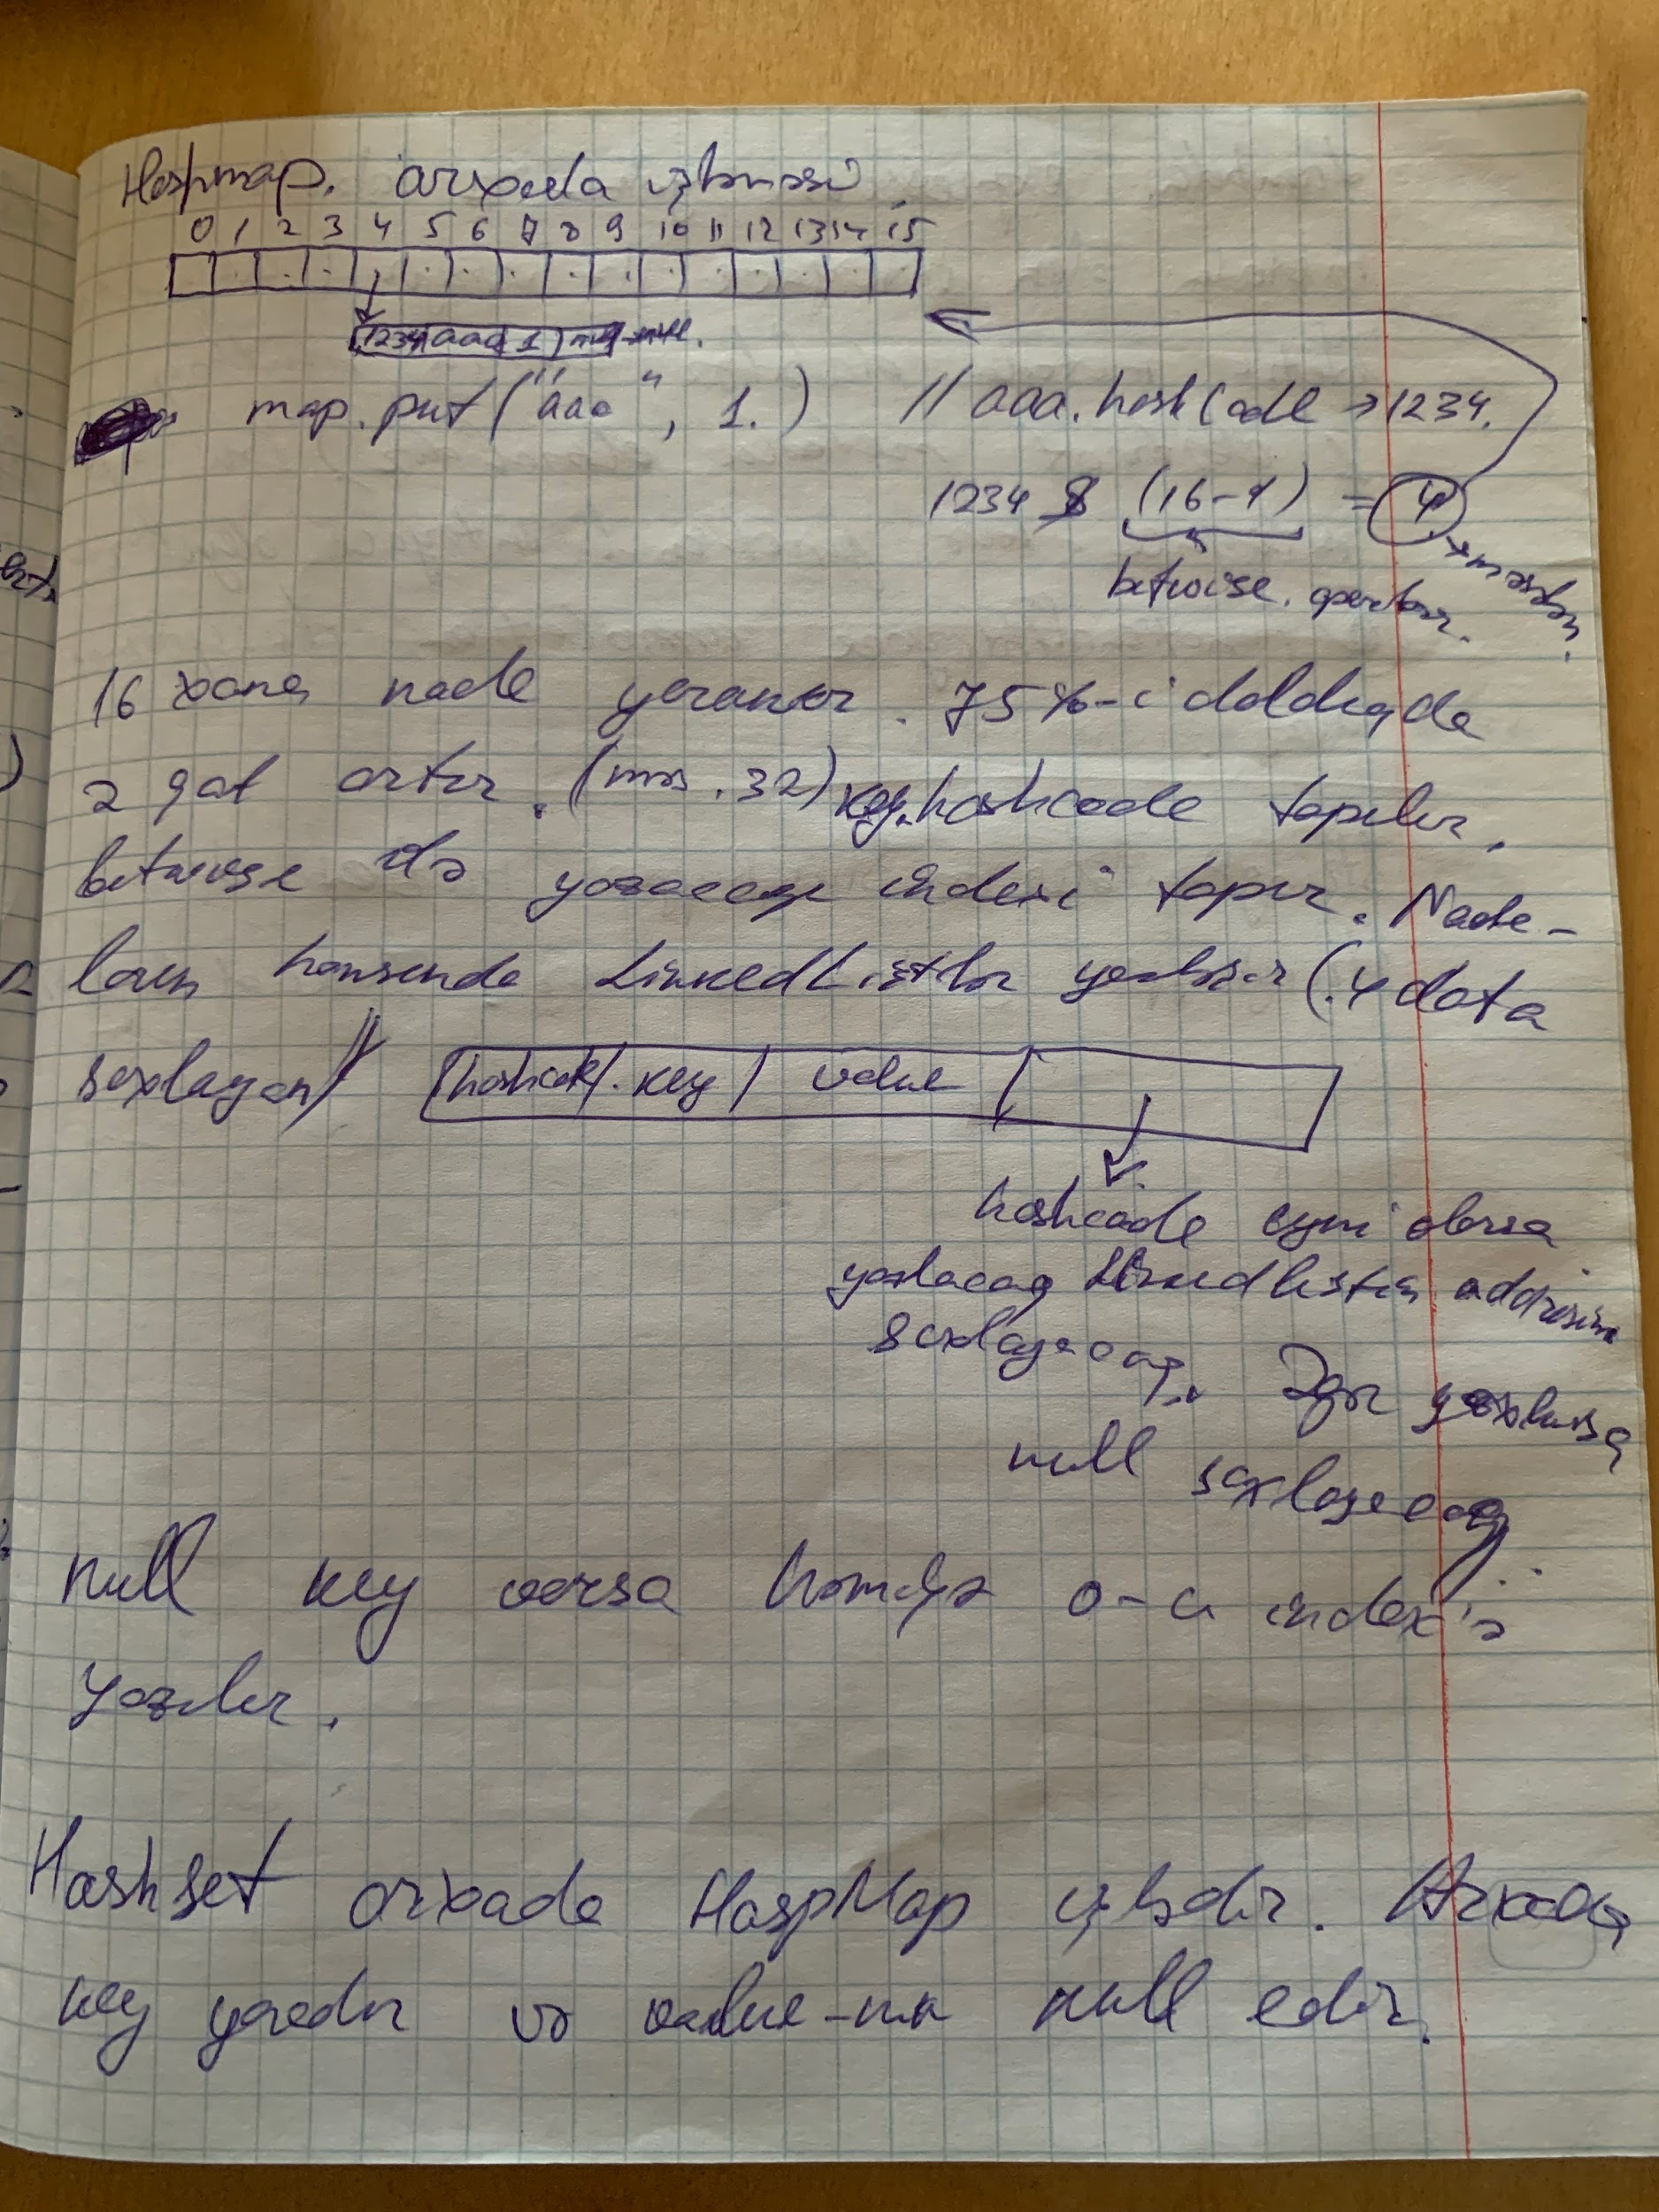 Hashmap. arxada işləməsi
0 1 2 3 4 5 6 7 8 9 10 11 12 13 14 15
1234 aaa 1 null
map.put("aaa", 1.) // aaa.hashCode → 1234.
1234 & (16-1) = 4
betwise. operator. məsələn.
16 xana node yaranır. 75%-i dolduqda
2 qat artır. (məs. 32) key.hashcode tapılır.
betwise ilə yazacağı indexi tapır. Node-
ların hansında LinkedListlər yerləşir (4 data
saxlayan)
hashcode key value
hashcode eyni olarsa
yazılacaq Linkedlistin addresini
saxlayacaq. Əgər yoxdursa
null saxlayacaq
null key versə həmişə 0-cı index'ə
yazılır.
Hashset arxada HaspMap işlədir. Arxada
key yaradır və value-nu null edir.